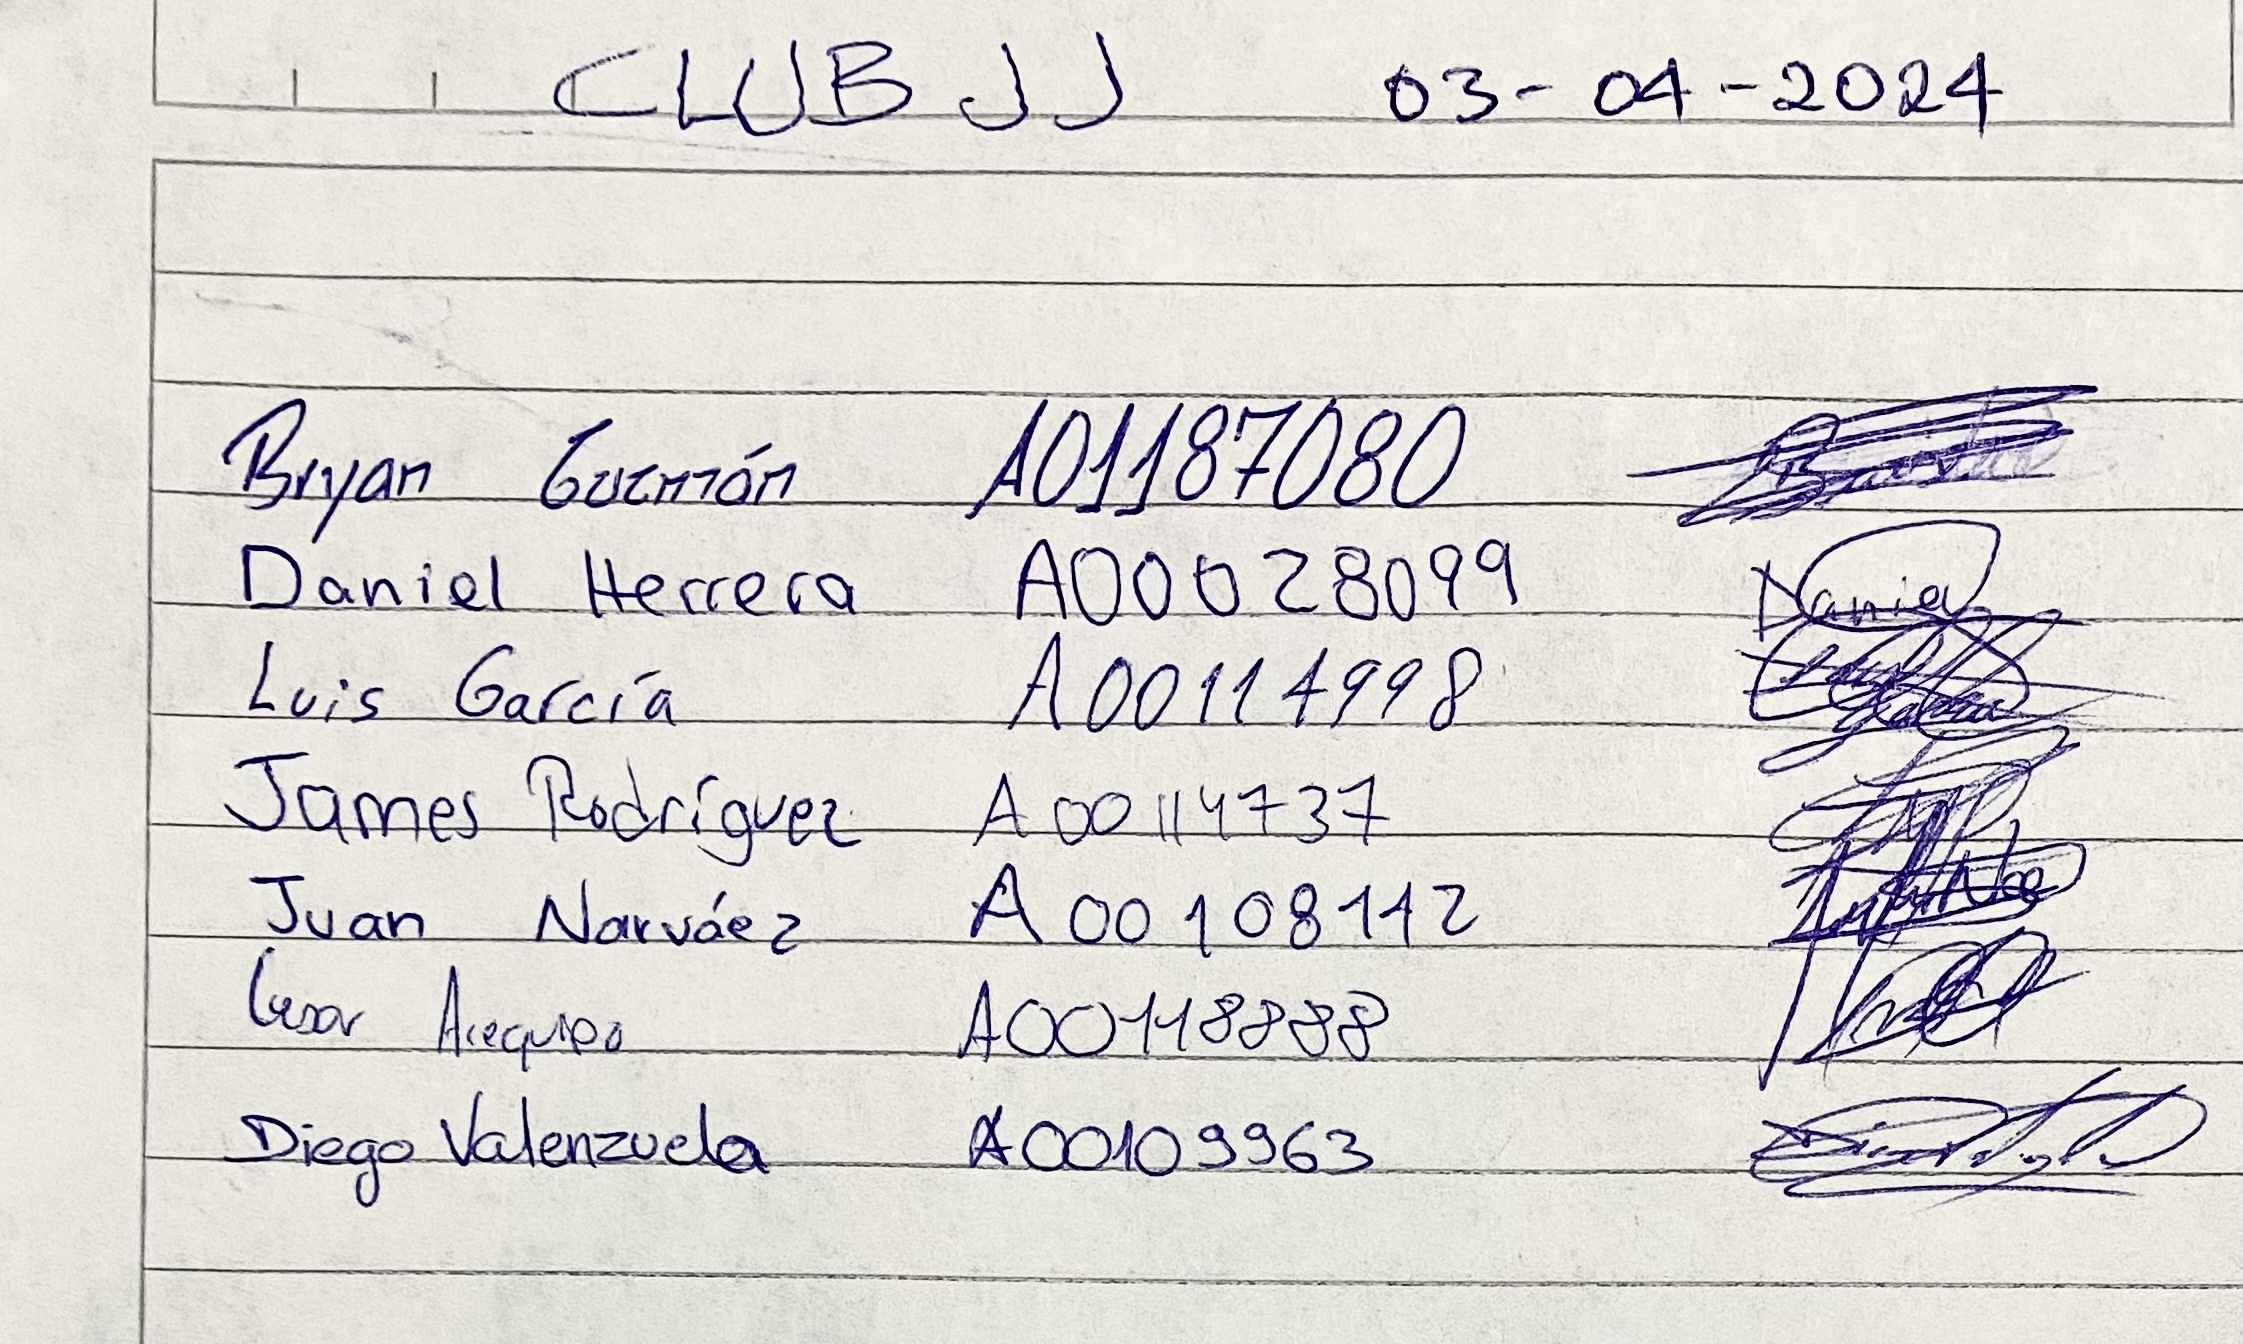 CLUB JJ 03-04-2024
Bryan Guzmán A01187080
Daniel Herrera A00028099 Daniel
Luis García A00114998
James Rodríguez A00114737
Juan Narváez A00108142
Cesar Arequipa A00118888
Diego Valenzuela A00109963